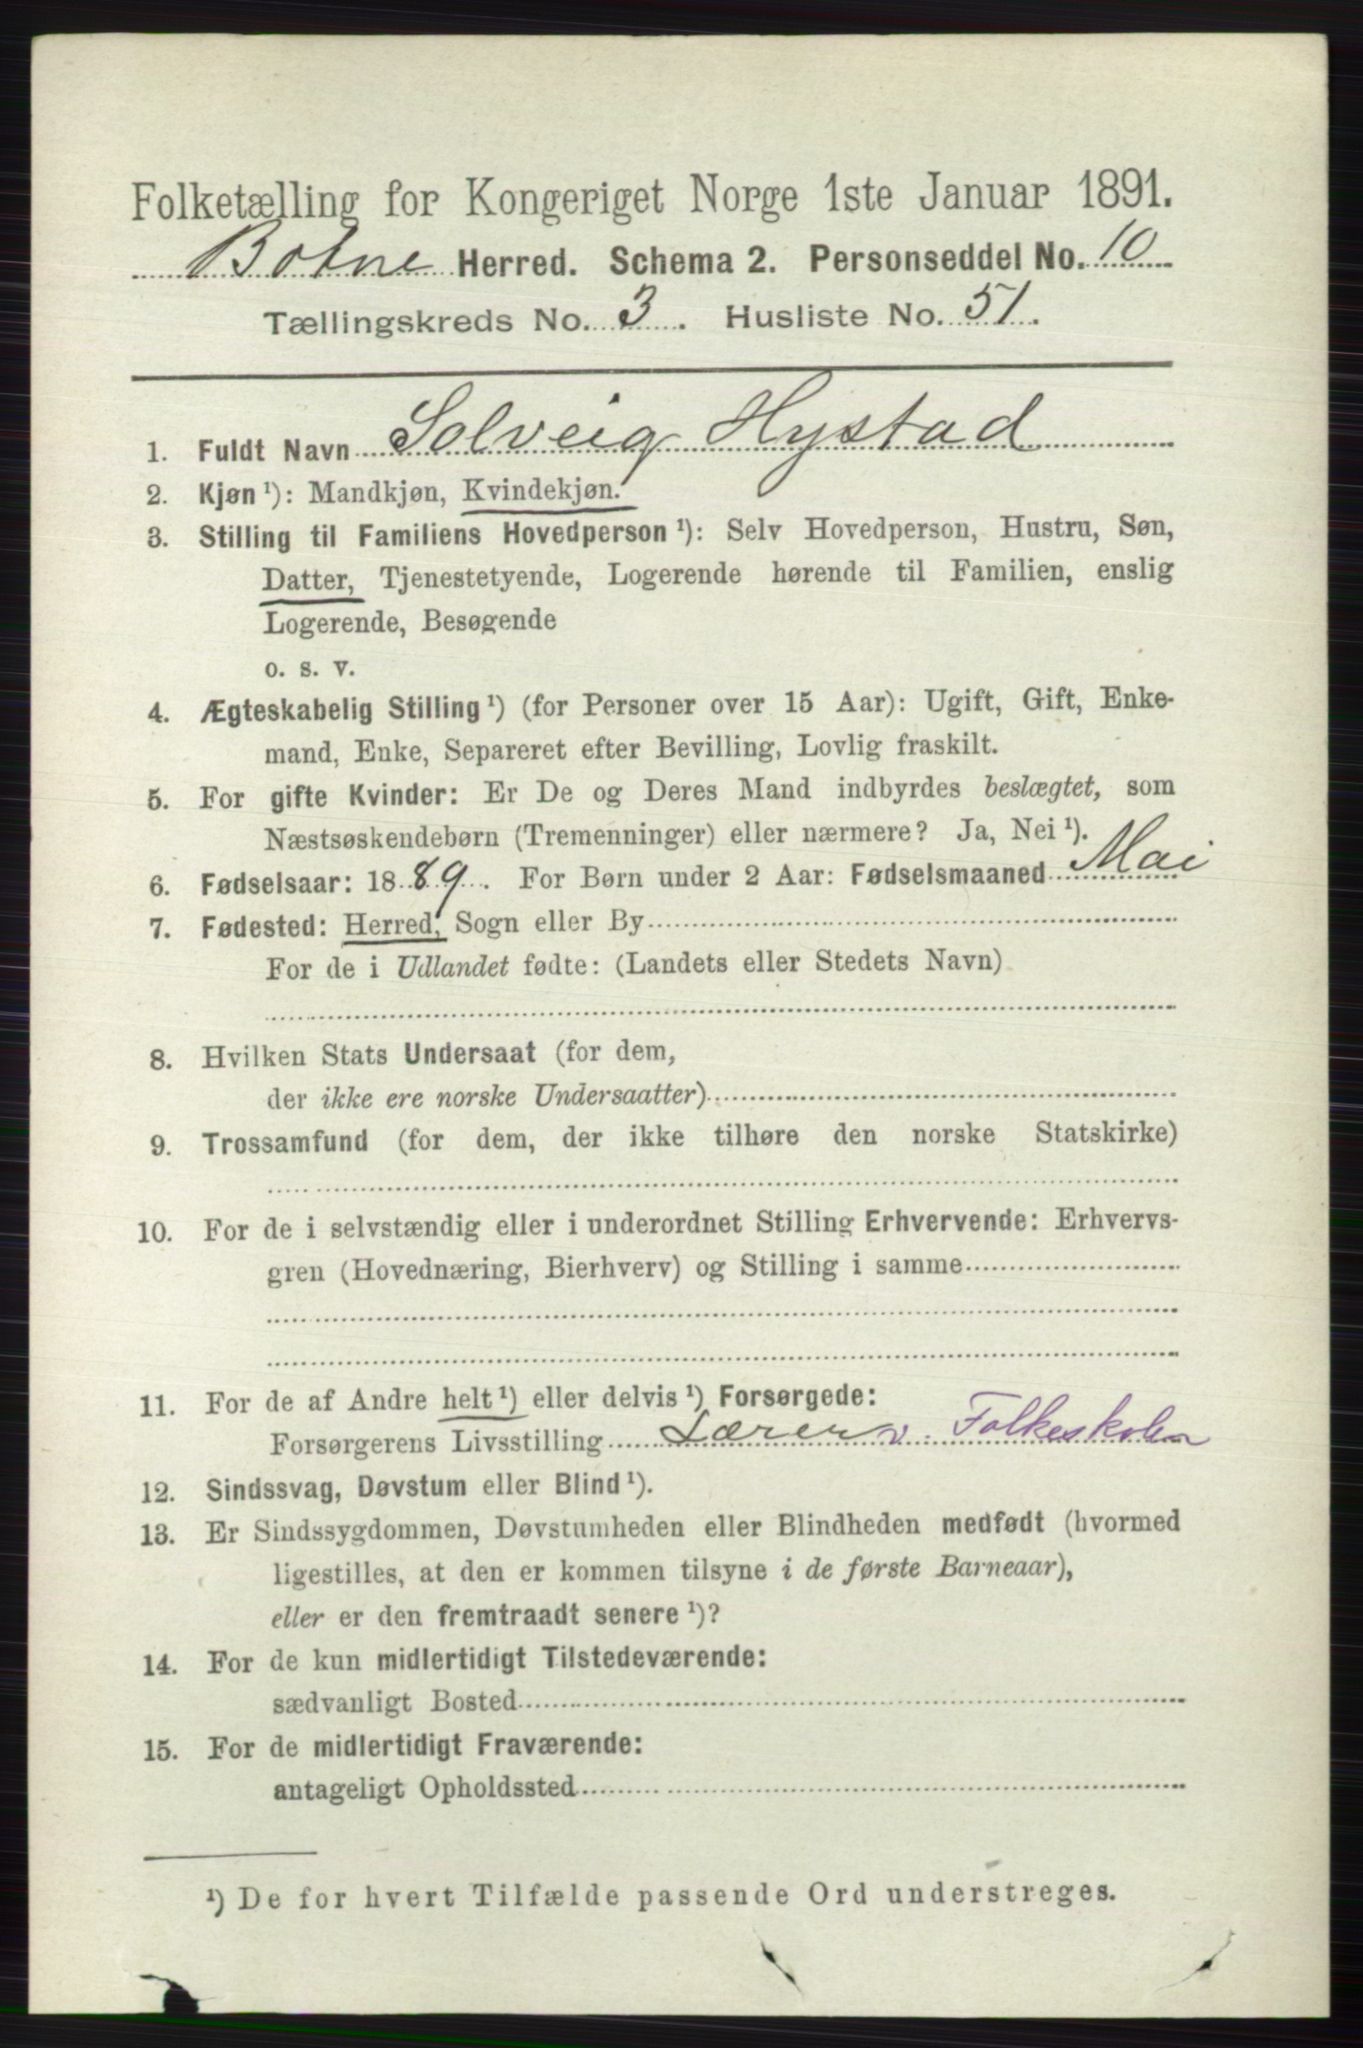 Folketælling for Kongeriget Norge 1ste Januar 1891.
Botne Herred. Schema 2. Personseddel No. 10
Tællingskreds No. 3. Husliste No. 51.
1. Fuldt Navn Solveig Hystad
2. Kjøn ¹): Mandkjøn, Kvindekjøn.
3. Stilling til Familiens Hovedperson ¹): Selv Hovedperson, Hustru, Søn,
Datter, Tjenestetyende, Logerende hørende til Familien, enslig
Logerende, Besøgende
o. s. v.
4. Ægteskabelig Stilling ¹) (for Personer over 15 Aar): Ugift, Gift, Enke-
mand, Enke, Separeret efter Bevilling, Lovlig fraskilt.
5. For gifte Kvinder: Er De og Deres Mand indbyrdes beslægtet, som
Næstsøskendebørn (Tremenninger) eller nærmere? Ja, Nei ¹).
6. Fødselsaar: 1889. For Børn under 2 Aar: Fødselsmaaned Mai
7. Fødested: Herred, Sogn eller By
For de i Udlandet fødte: (Landets eller Stedets Navn)
8. Hvilken Stats Undersaat (for dem,
der ikke ere norske Undersaatter)
9. Trossamfund (for dem, der ikke tilhøre den norske Statskirke)
10. For de i selvstændig eller i underordnet Stilling Erhvervende: Erhvervs-
gren (Hovednæring, Bierhverv) og Stilling i samme
11. For de af Andre helt ¹) eller delvis ¹) Forsørgede:
Forsørgerens Livsstilling Lærer v. Folkeskolen
12. Sindssvag, Døvstum eller Blind ¹).
13. Er Sindssygdommen, Døvstumheden eller Blindheden medfødt (hvormed
ligestilles, at den er kommen tilsyne i de første Barneaar),
eller er den fremtraadt senere ¹)?
14. For de kun midlertidigt Tilstedeværende:
sædvanligt Bosted
15. For de midlertidigt Fraværende:
antageligt Opholdssted
¹) De for hvert Tilfælde passende Ord understreges.